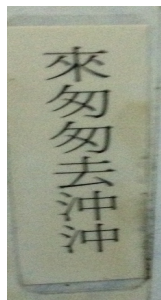 來匆匆去沖沖